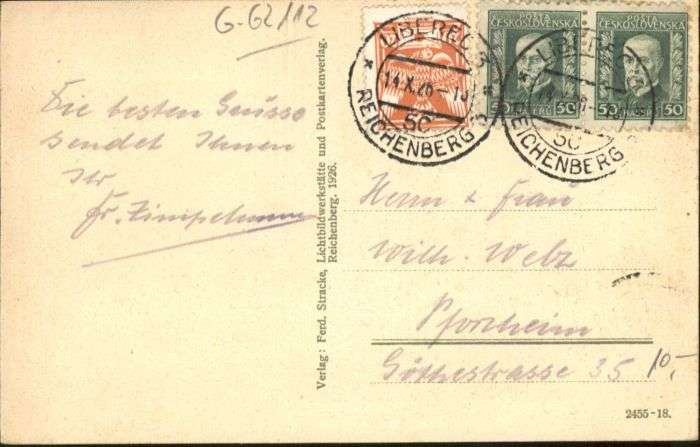 G-62112
Die besten Grüsse
sendet Ihnen
Ihr
Fr.
Verlag: Ferd. Stracke, Lichtbildwerkstätte und Postkartenverlag.
Reichenberg. 1926.
POŠTA
ČESKOSLOVENSKA
50 50
POŠTA
ČESKOSLOVENSKA
50 50
LIBEREC
14.X.26
5c
REICHENBERG
LIBEREC
5c
REICHENBERG
Herrn & Frau
Wilh. Welz
Pforzheim
Göthestrasse 35
10,-
2455-18.